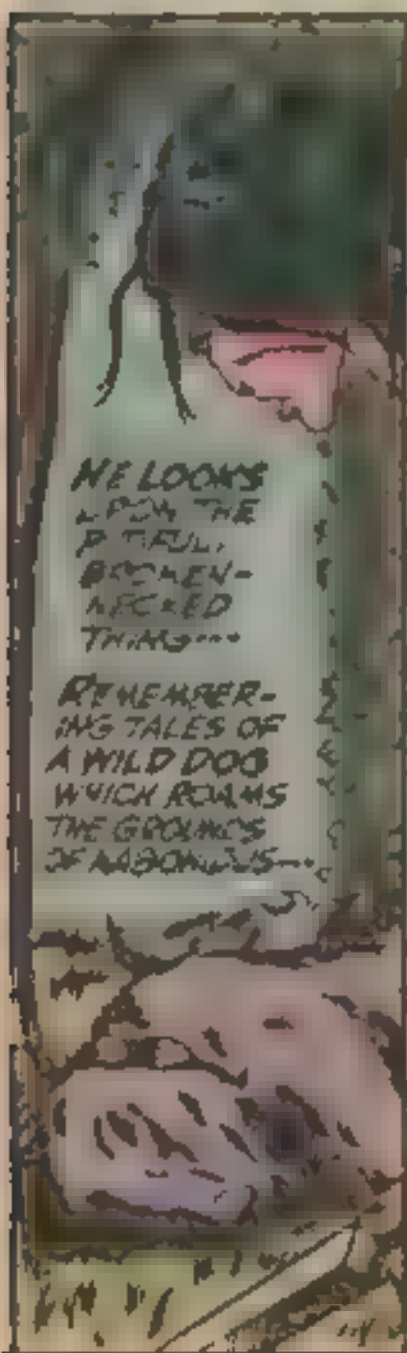 HE LOOKS
UPON THE
PITIFUL,
BROKEN-
NECKED
THING---
REMEMBER-
ING TALES OF
A WILD DOG
WHICH ROAMS
THE GROUNDS
OF